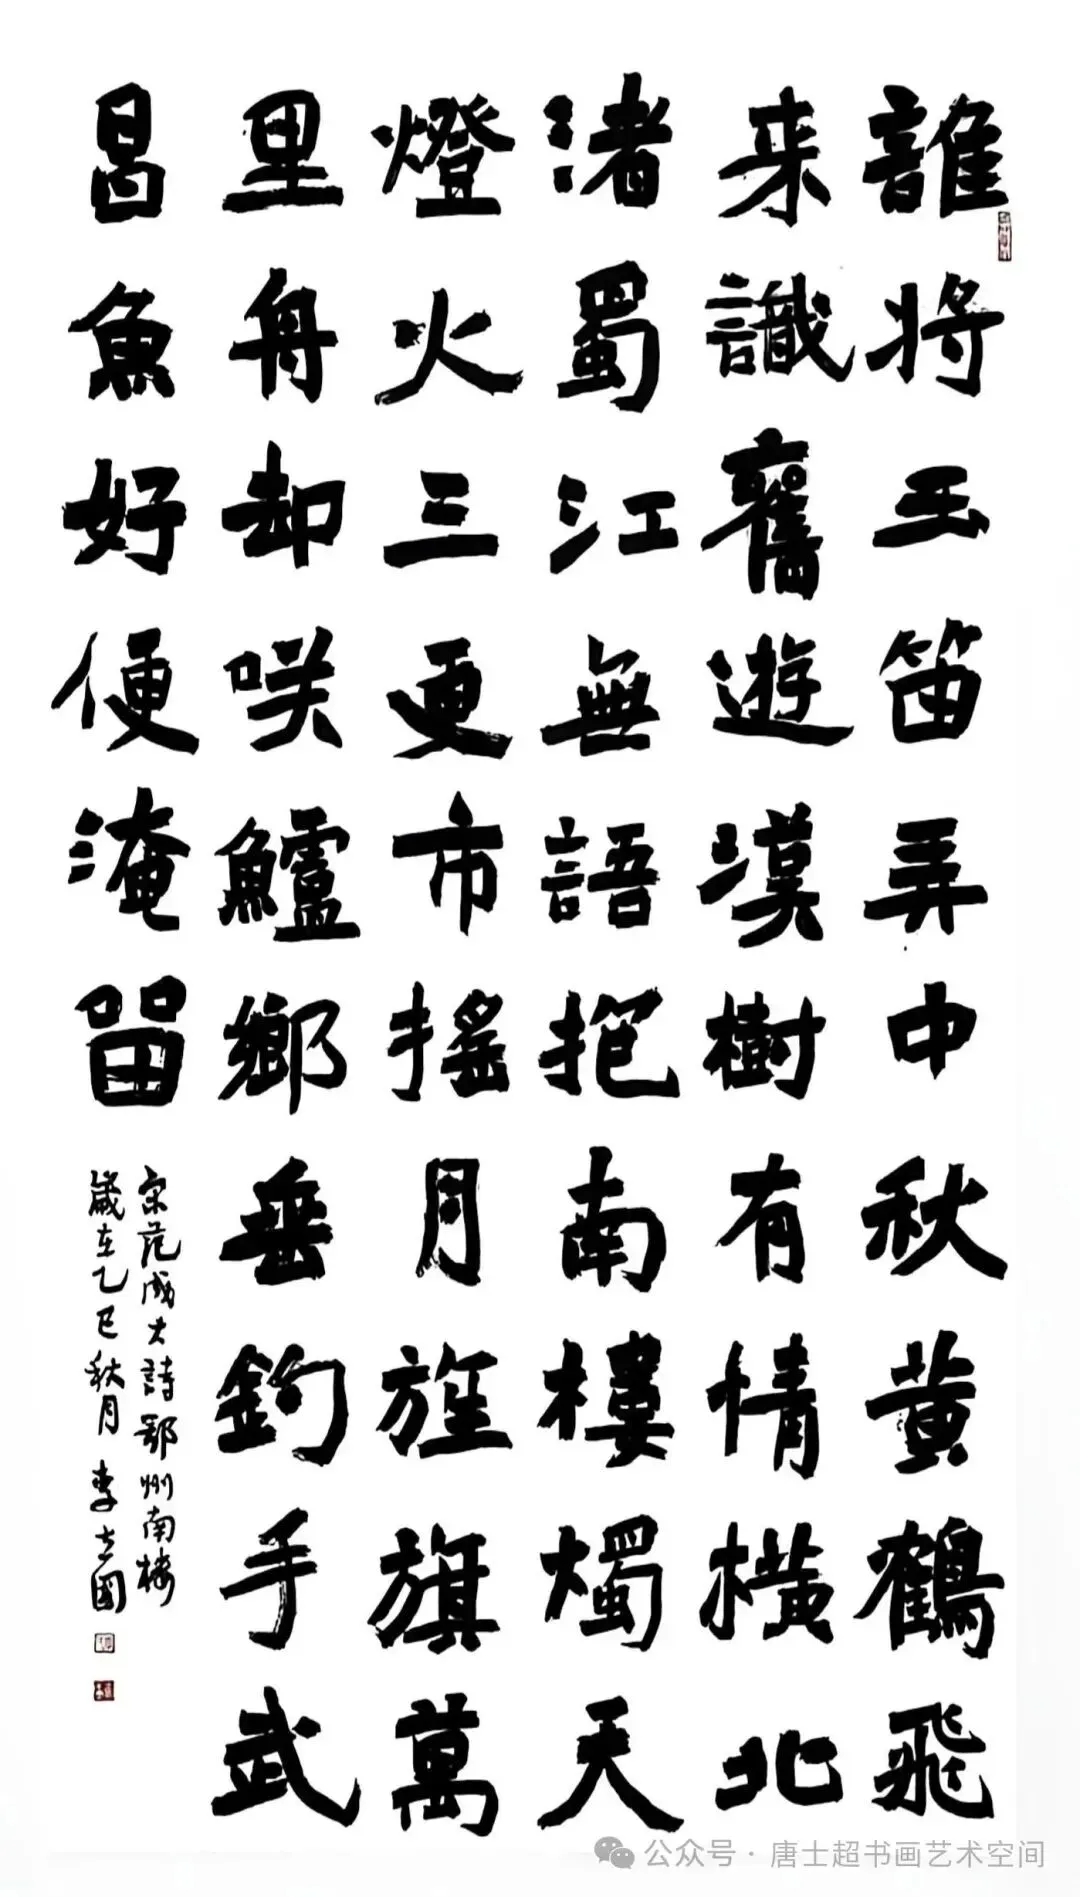 誰將玉笛弄中秋黄鶴飛
来識舊遊漢樹有情横北
渚蜀江無語抱南樓燭天
燈火三更市摇月旌旗萬
里舟却咲鱸鄉垂釣手武
昌魚好便淹留
宋范成大詩鄂州南楼
歲在乙巳秋月李立國
公众号·唐士超书画艺术空间